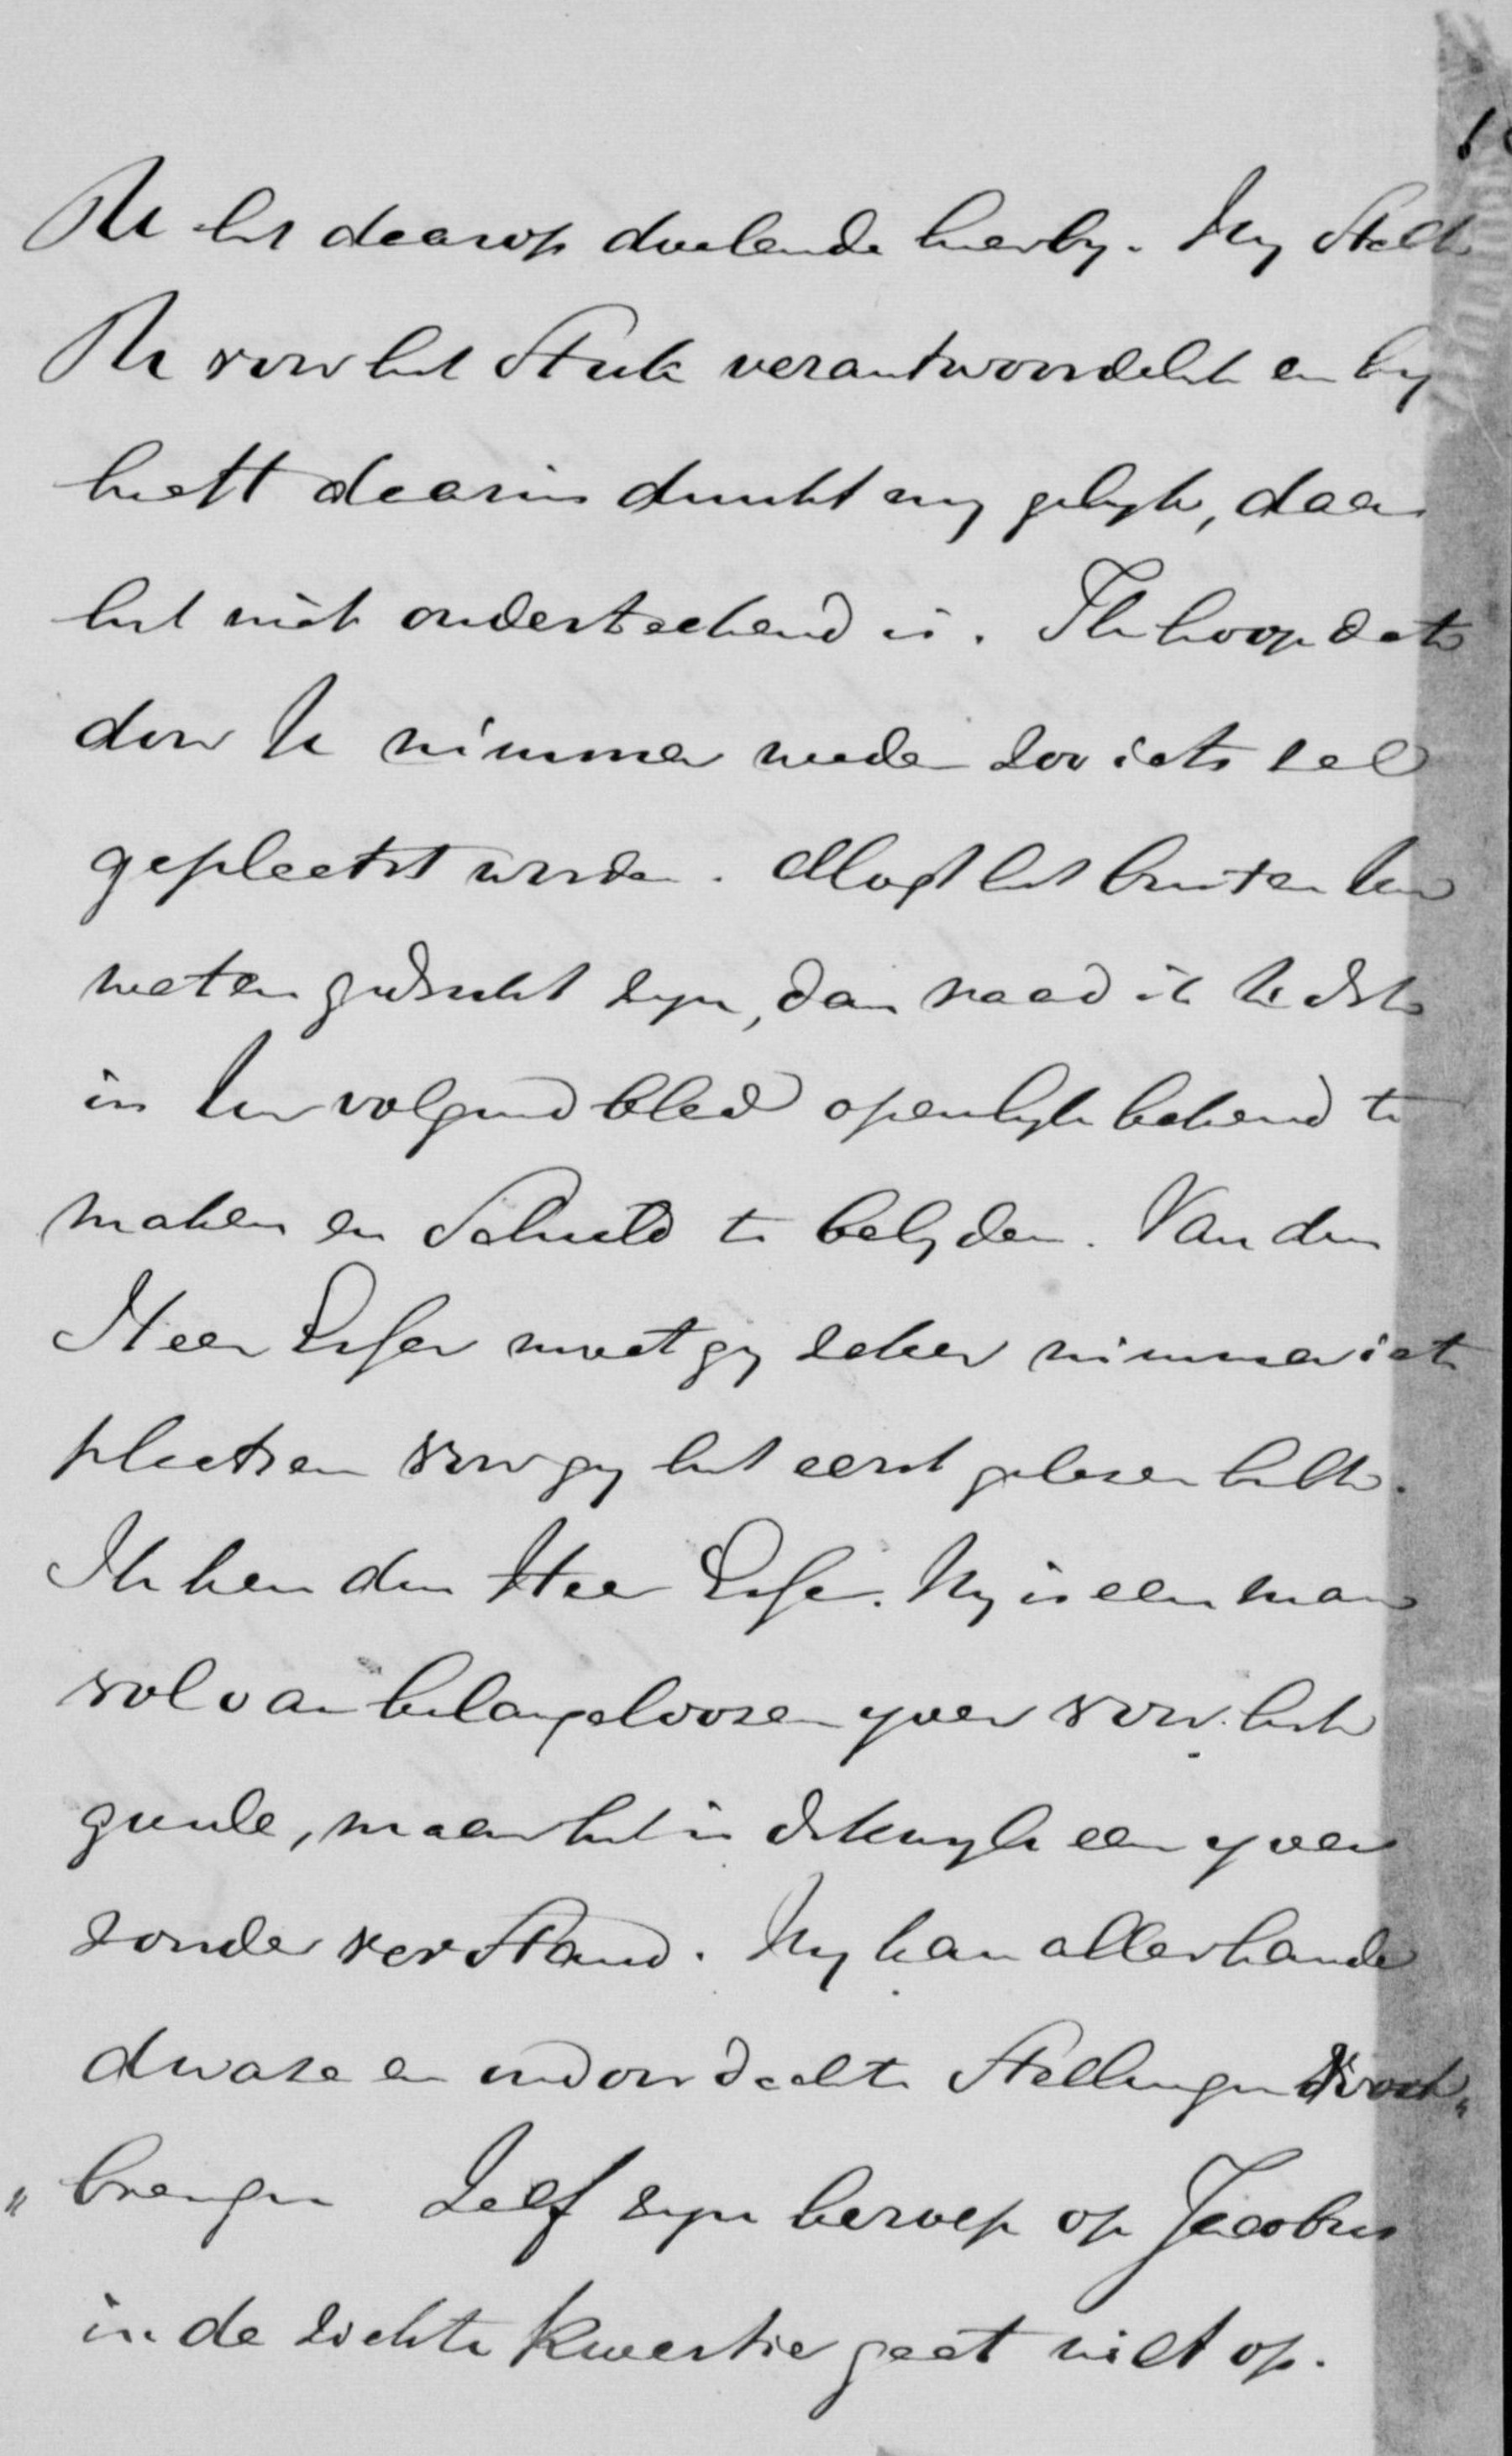 U het daarop doelende hierby. Hy stelt
U voor het stuk verantwoordelyk en hy
heeft daarin dunkt my gelyk, daar
het niet onderteekend is. Ik hoop dat
door U nimmer weder zoo iets zal
geplaatst worden. Mogt het buiten Uw
weten gedrukt zyn, dan raad ik U dit
in Uw volgend blad openlyk bekend te
maken en schuld te belyden. Van den
Heer Esser moet gy zeker nimmer iets
plaatsen voor gy het eerst gelezen hebt.
Ik ken den Heer Esser. Hy is een man
vol van belangeloozen yver voor het
goede, maar het is dikwyls een yver
zonder verstand. Hy kan allerhande
dwaze en ondoordachte stellingen voort„
„brengen Zelf zyn beroep op Jacobus
in de ziekte kwestie gaat niet op.